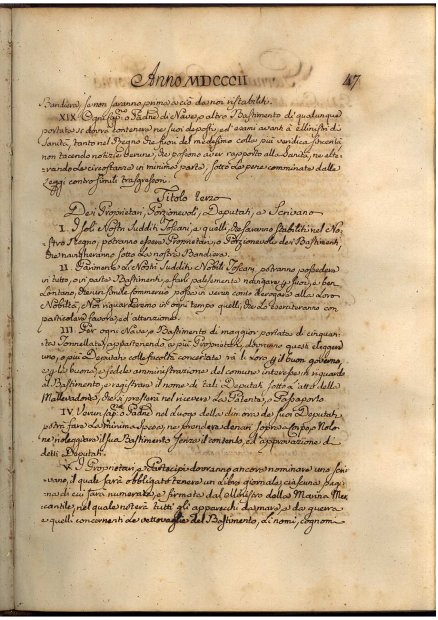 Anno MDCCCII 47
Bandiera, se non saranno prima a ciò da noi ristabiliti.
XIX. Ogni Cap.° o Padre di Nave, o altro Bastimento di qualunque
portata si dovrà contenere ne' suoi deposti, ed esami avanti à Ministri di
Sanità, tanto nel Regno che fuori del medesimo colla più veridica sincerità
non tacendo notizie veruna, che possono aver rapporto alla Sanità, ne alte-
rando le circostanze in minima parte, sotto le pene comminate dalle
Leggi contro simili trasgressori.
Titolo Terzo
Dei Proprietari, Porzionevoli, Deputati, e Scrivano
I. I soli Nostri Sudditi Toscani, e quelli che saranno stabiliti nel No-
stro Regno, potranno essere Proprietari, o Porzionevoli dei Bastimenti,
che navigheranno sotto la nostra Bandiera.
II. Parimente i Nostri Sudditi Nobili Toscani, potranno possedere
in tutto, o in parte Bastimenti, e farli palesemente navigare, e fuori, e ben
Lontano, che un simile commercio possa in verun conto derogare alla Loro
Nobiltà, e Noi riguarderemo in ogni tempo quelli, che Lo eserciteranno con
particolare favore, ed attenzione.
III. Per ogni Nave, o Bastimento di maggior portata di cinquan-
ta Tonnellate, appartenendo a più Proprietari, dovranno questi eleggere
uno, o più Deputati colle facoltà concertate trà di Loro per il buon governo,
e per la buona, e fedele amministrazione del comune interesse in riguardo
al Bastimento, e registrare il nome di tali Deputati sotto L'atto della
Mallevadoria, che si presterà nel ricevere La Patente, e Passaporto.
IV. Verun Cap.° o Padre nel Luogo della dimora de' suoi Deputati
potrà fare La minima spesa, ne prendere denari sopra a Corpo, o Nolo
ne noleggiare il suo Bastimento senza il contento, ed approvazione di
detti Deputati.
V. I Proprietari, o Partecipi dovranno ancora nominare uno scri-
vano, il quale sarà obbligato tenere un Libro giornale, ciascuna pagi-
na di cui sarà numerata, e firmata dal Ministro della Marina Mer-
cantile, nel quale noterà tutti gli apparecchi da mare, e da guerra
e quelli concernenti Le vettovaglie del Bastimento, Li nomi, cognomi